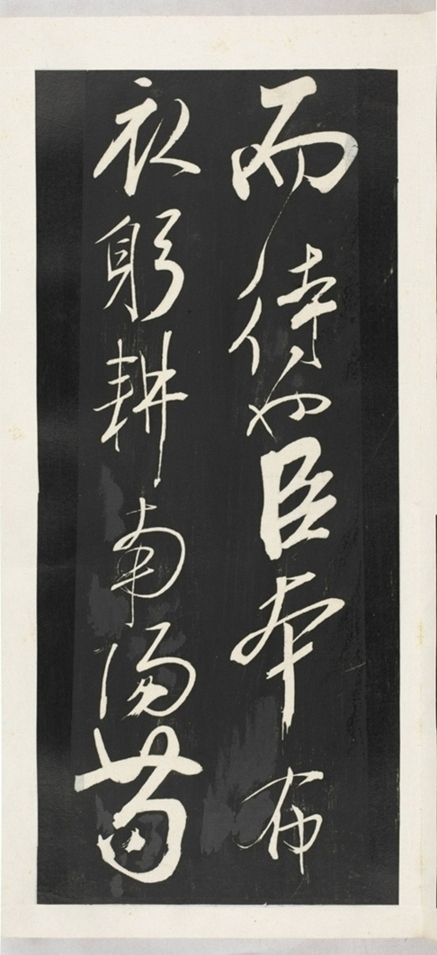 而待也臣本布
衣躬耕南陽苟